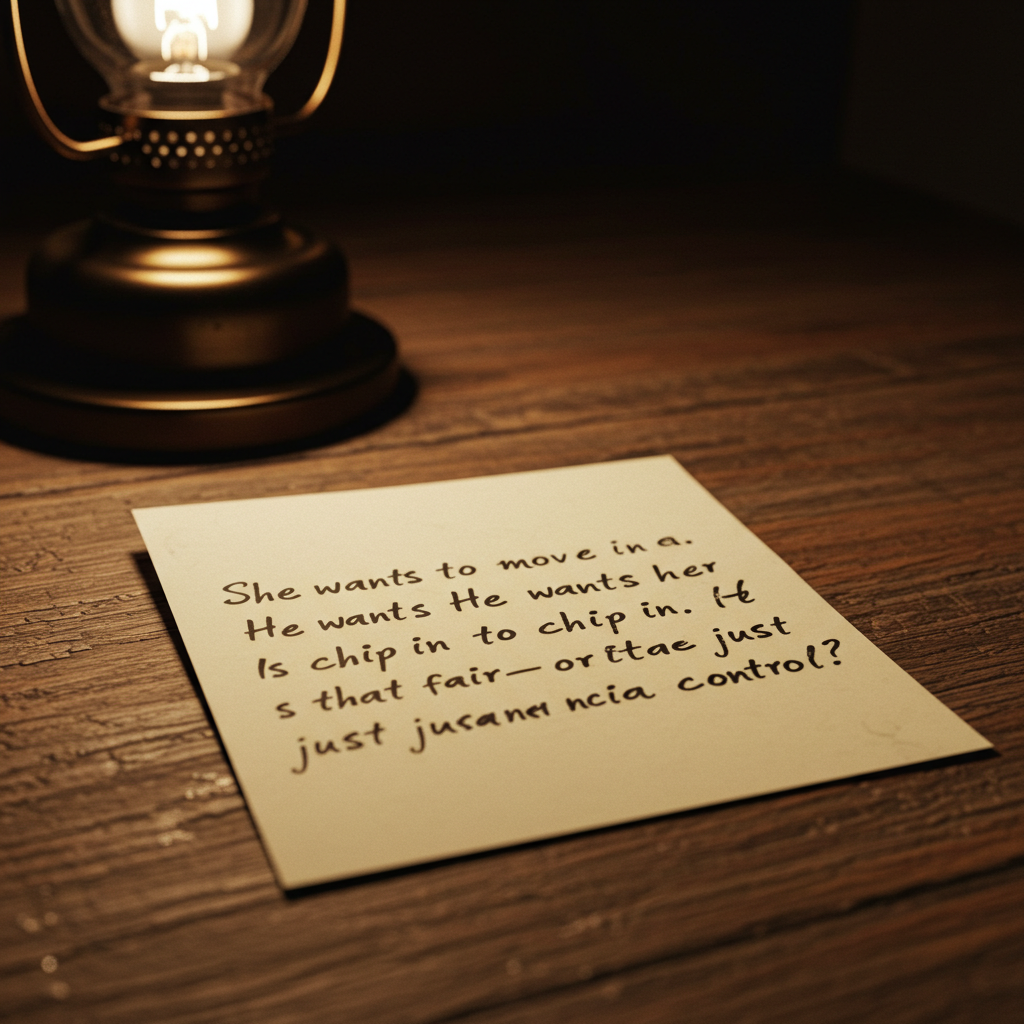 She wants to move in a.
He wants He wants her
Is chip in to chip in.
s that fair— or just
just control?